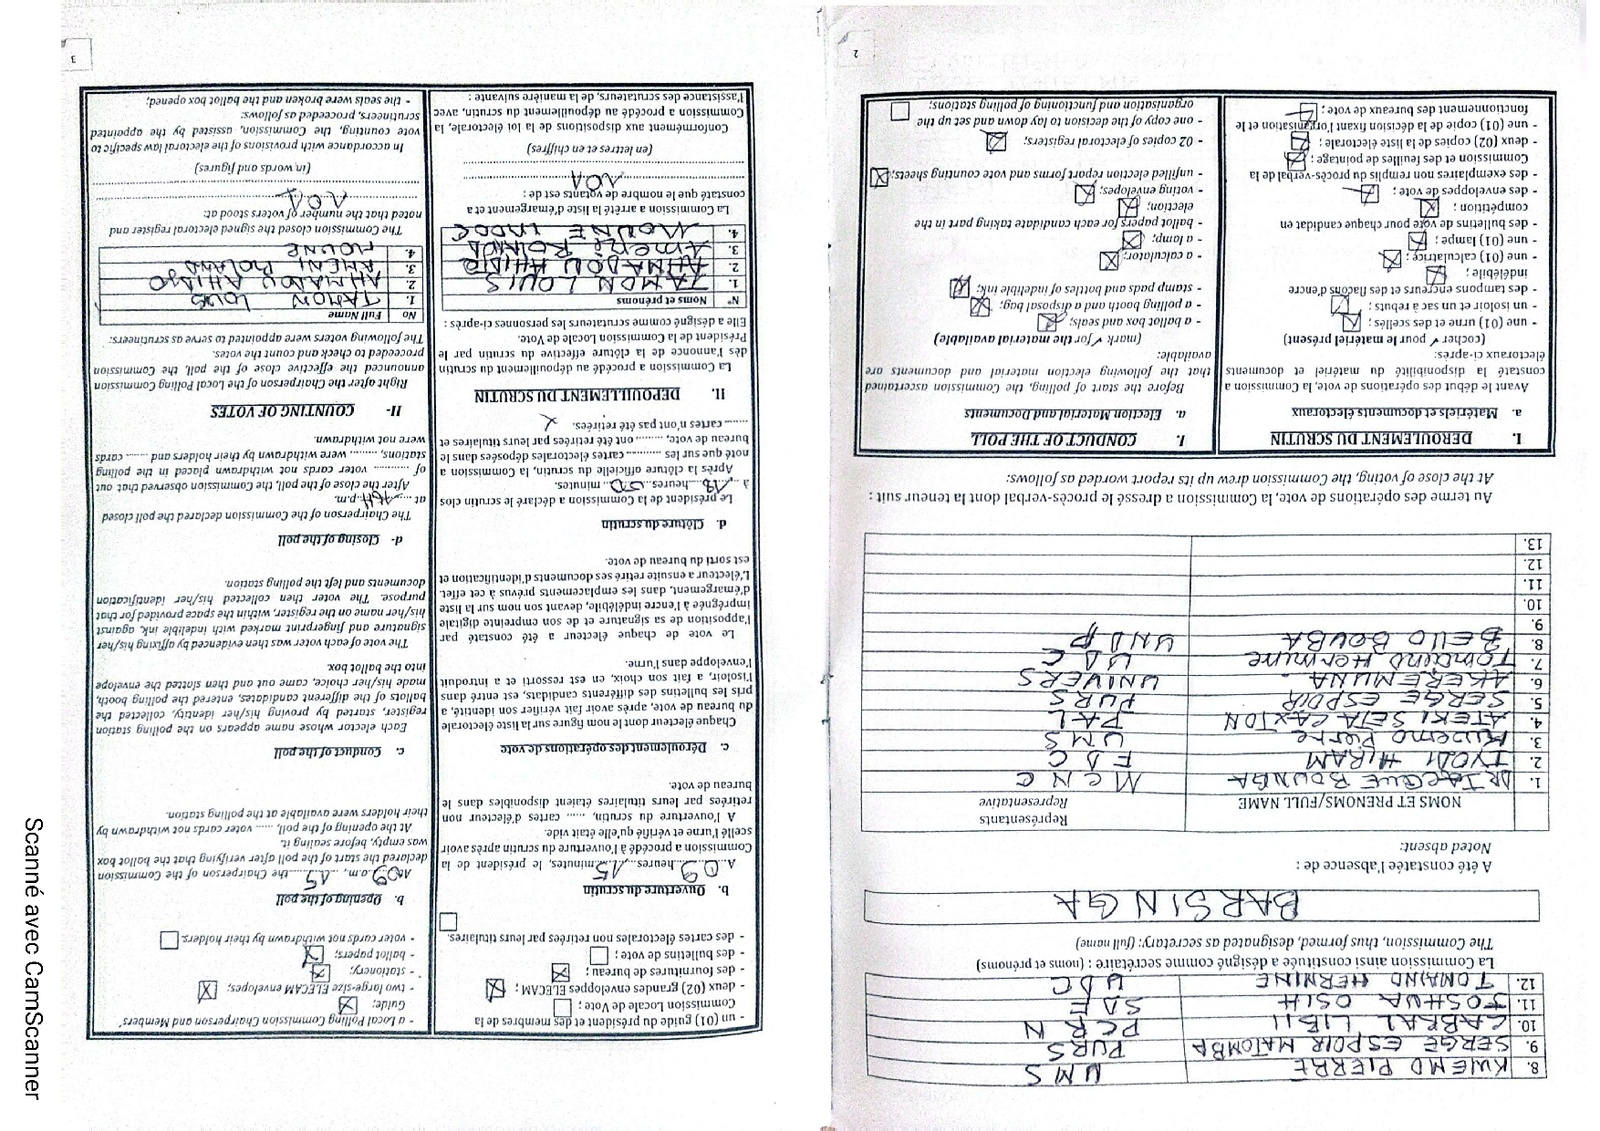 2
8. KWEMO PIERRE UMS
9. SERGE ESPOIR MATOMBA PURS
10. CABRAL LIBII PCRN
11. JOSHUA OSIH SDF
12. TOMAINO HERMINE UDC
La Commission ainsi constituée a désigné comme secrétaire : (noms et prénoms)
The Commission, thus formed, designated as secretary: (full name)
BARSINGA
A été constatée l'absence de :
Noted absent:
NOMS ET PRENOMS/FULL NAME Représentants
Representative
1. DR JACQUE BOUNGA MCNC
2. IYODI HIRAM FDC
3. Kwemo Pierre UMS
4. ATEKI SETA CAXTON PAL
5. SERGE ESPOIR PURS
6. AKEREMUNA UNIVERS
7. Tomaino Hermine UDC
8. BELLO BOUBA UNDP
9.
10.
11.
12.
13.
Au terme des opérations de vote, la Commission a dressé le procès-verbal dont la teneur suit :
At the close of voting, the Commission drew up its report worded as follows:
I. DEROULEMENT DU SCRUTIN
a. Matériels et documents électoraux
Avant le début des opérations de vote, la Commission a
constaté la disponibilité du matériel et documents
électoraux ci-après:
(cocher ✓ pour le matériel présent)
- une (01) urne et des scellés;
- un isoloir et un sac à rebuts ;
- des tampons encreurs et des flacons d'encre
indélébile ;
- une (01) calculatrice ;
- une (01) lampe ;
- des bulletins de vote pour chaque candidat en
compétition ;
- des enveloppes de vote ;
- des exemplaires non remplis du procès-verbal de la
Commission et des feuilles de pointage ;
- deux (02) copies de la liste électorale ;
- une (01) copie de la décision fixant l'organisation et le
fonctionnement des bureaux de vote ;
I. CONDUCT OF THE POLL
a. Election Material and Documents
Before the start of polling, the Commission ascertained
that the following election material and documents are
available:
(mark ✓ for the material available)
- a ballot box and seals;
- a polling booth and a disposal bag;
- stamp pads and bottles of indelible ink;
- a calculator;
- a lamp;
- ballot papers for each candidate taking part in the
election;
- voting envelopes;
- unfilled election report forms and vote counting sheets;
- 02 copies of electoral registers;
- one copy of the decision to lay down and set up the
organisation and functioning of polling stations;
3
- un (01) guide du président et des membres de la
Commission Locale de Vote ;
- deux (02) grandes enveloppes ELECAM ;
- des fournitures de bureau ;
- des bulletins de vote ;
- des cartes électorales non retirées par leurs titulaires.
b. Ouverture du scrutin
A 09 heures 15 minutes, le président de la
Commission a procédé à l'ouverture du scrutin après avoir
scellé l'urne et vérifié qu'elle était vide.
A l'ouverture du scrutin, ...... cartes d'électeur non
retirées par leurs titulaires étaient disponibles dans le
bureau de vote.
c. Déroulement des opérations de vote
Chaque électeur dont le nom figure sur la liste électorale
du bureau de vote, après avoir fait vérifier son identité, a
pris les bulletins des différents candidats, est entré dans
l'isoloir, a fait son choix, en est ressorti et a introduit
l'enveloppe dans l'urne.
Le vote de chaque électeur a été constaté par
l'apposition de sa signature et de son empreinte digitale
imprégnée à l'encre indélébile, devant son nom sur la liste
d'émargement, dans les emplacements prévus à cet effet.
L'électeur a ensuite retiré ses documents d'identification et
est sorti du bureau de vote.
d. Clôture du scrutin
Le président de la Commission a déclaré le scrutin clos
à 18 heures 50 minutes.
Après la clôture officielle du scrutin, la Commission a
noté que sur les ......... cartes électorales déposées dans le
bureau de vote, ........ ont été retirées par leurs titulaires et
........ cartes n'ont pas été retirées.
II. DEPOUILLEMENT DU SCRUTIN
La Commission a procédé au dépouillement du scrutin
dès l'annonce de la clôture effective du scrutin par le
Président de la Commission Locale de Vote.
Elle a désigné comme scrutateurs les personnes ci-après :
N° Noms et prénoms
1. TAMON LOUIS
2. AHMADOU AHIDJO
3. Ameni ROLAND
4. MOUNE
La Commission a arrêté la liste d'émargement et a
constaté que le nombre de votants est de :
101
(en lettres et en chiffres)
Conformément aux dispositions de la loi électorale, la
Commission a procédé au dépouillement du scrutin, avec
l'assistance des scrutateurs, de la manière suivante :
- a Local Polling Commission Chairperson and Members'
Guide;
- two large-size ELECAM envelopes;
- stationery;
- ballot papers;
- voter cards not withdrawn by their holders.
b. Opening of the poll
At 09 a.m, 15 the Chairperson of the Commission
declared the start of the poll after verifying that the ballot box
was empty, before sealing it.
At the opening of the poll, ...... voter cards not withdrawn by
their holders were available at the polling station.
c. Conduct of the poll
Each elector whose name appears on the polling station
register, started by proving his/her identity, collected the
ballots of the different candidates, entered the polling booth,
made his/her choice, came out and then slotted the envelope
into the ballot box
The vote of each voter was then evidenced by affixing his/her
signature and fingerprint marked with indelible ink, against
his/her name on the register, within the space provided for that
purpose. The voter then collected his/her identification
documents and left the polling station.
d- Closing of the poll
The Chairperson of the Commission declared the poll closed
at ........ p.m.
After the close of the poll, the Commission observed that out
of ........ voter cards not withdrawn placed in the polling
stations, ........ were withdrawn by their holders and ...... cards
were not withdrawn.
II- COUNTING OF VOTES
Right after the Chairperson of the Local Polling Commission
announced the effective close of the poll, the Commission
proceeded to check and count the votes.
The following voters were appointed to serve as scrutineers:
No Full Name
1. TAMON LOUIS
2. AHMADOU AHIDJO
3. AMENI ROLAND
4. MOUNE
The Commission closed the signed electoral register and
noted that the number of voters stood at:
101
(in words and figures)
In accordance with provisions of the electoral law specific to
vote counting, the Commission, assisted by the appointed
scrutineers, proceeded as follows:
- the seals were broken and the ballot box opened;
Scanné avec CamScanner